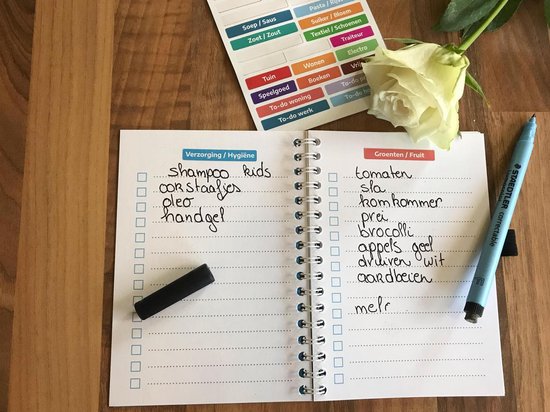 Pasta / Rijst
Soep / Saus
Suiker / Bloem
Zoet / Zout
Textiel / Schoenen
Traiteur
Electro
Tuin
Wonen
Speelgoed
Boeken
To-do woning
To-do werk
Verzorging / Hygiëne
shampoo kids
oorstaafjes
deo
handgel
Groenten / Fruit
tomaten
sla
komkommer
prei
brocolli
appels geel
druiven wit
aardbeien
melr
STAEDTLER
correctable